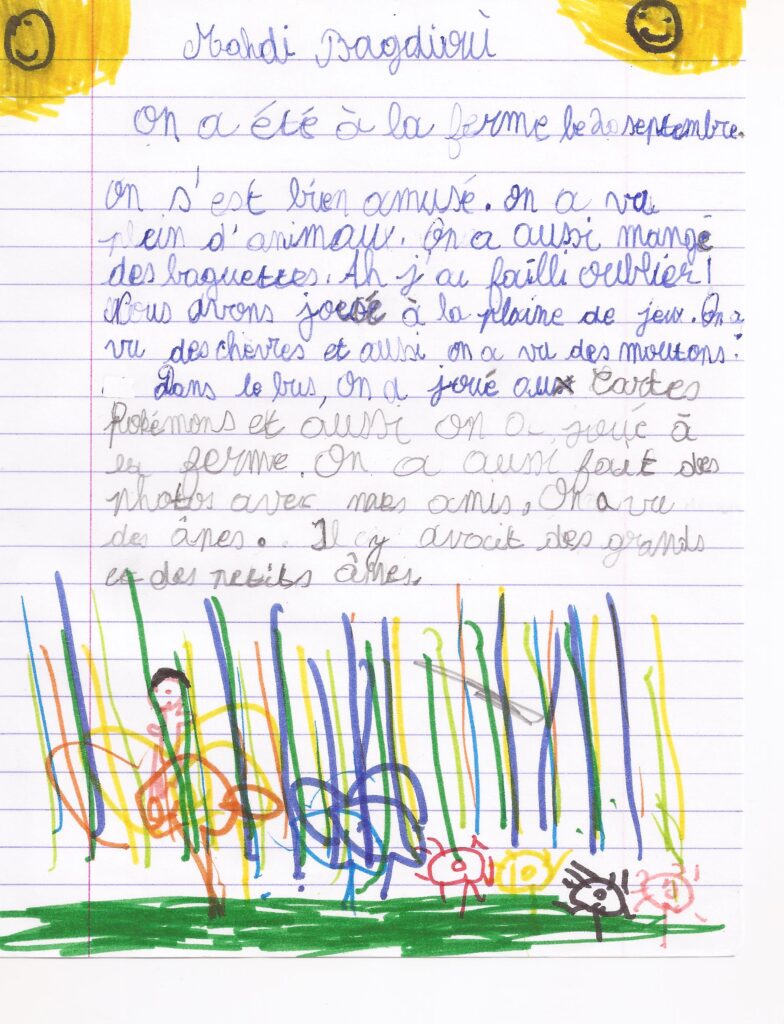 Mahdi Bagdioui
On a été à la ferme le 20 septembre.
On s'est bien amusé. on a vu
plein d'animaux. On a aussi mangé
des baguettes. Ah j'ai failli oublier!
Nous avons joué à la plaine de jeux. On a
vu des chèvres et aussi on a vu des moutons.
Dans le bus, on a joué aux cartes
Pokémons et aussi on a joué à
la ferme. On a aussi fait des
photos avec mes amis, On a vu
des ânes. Il y avait des grands
et des petits ânes.